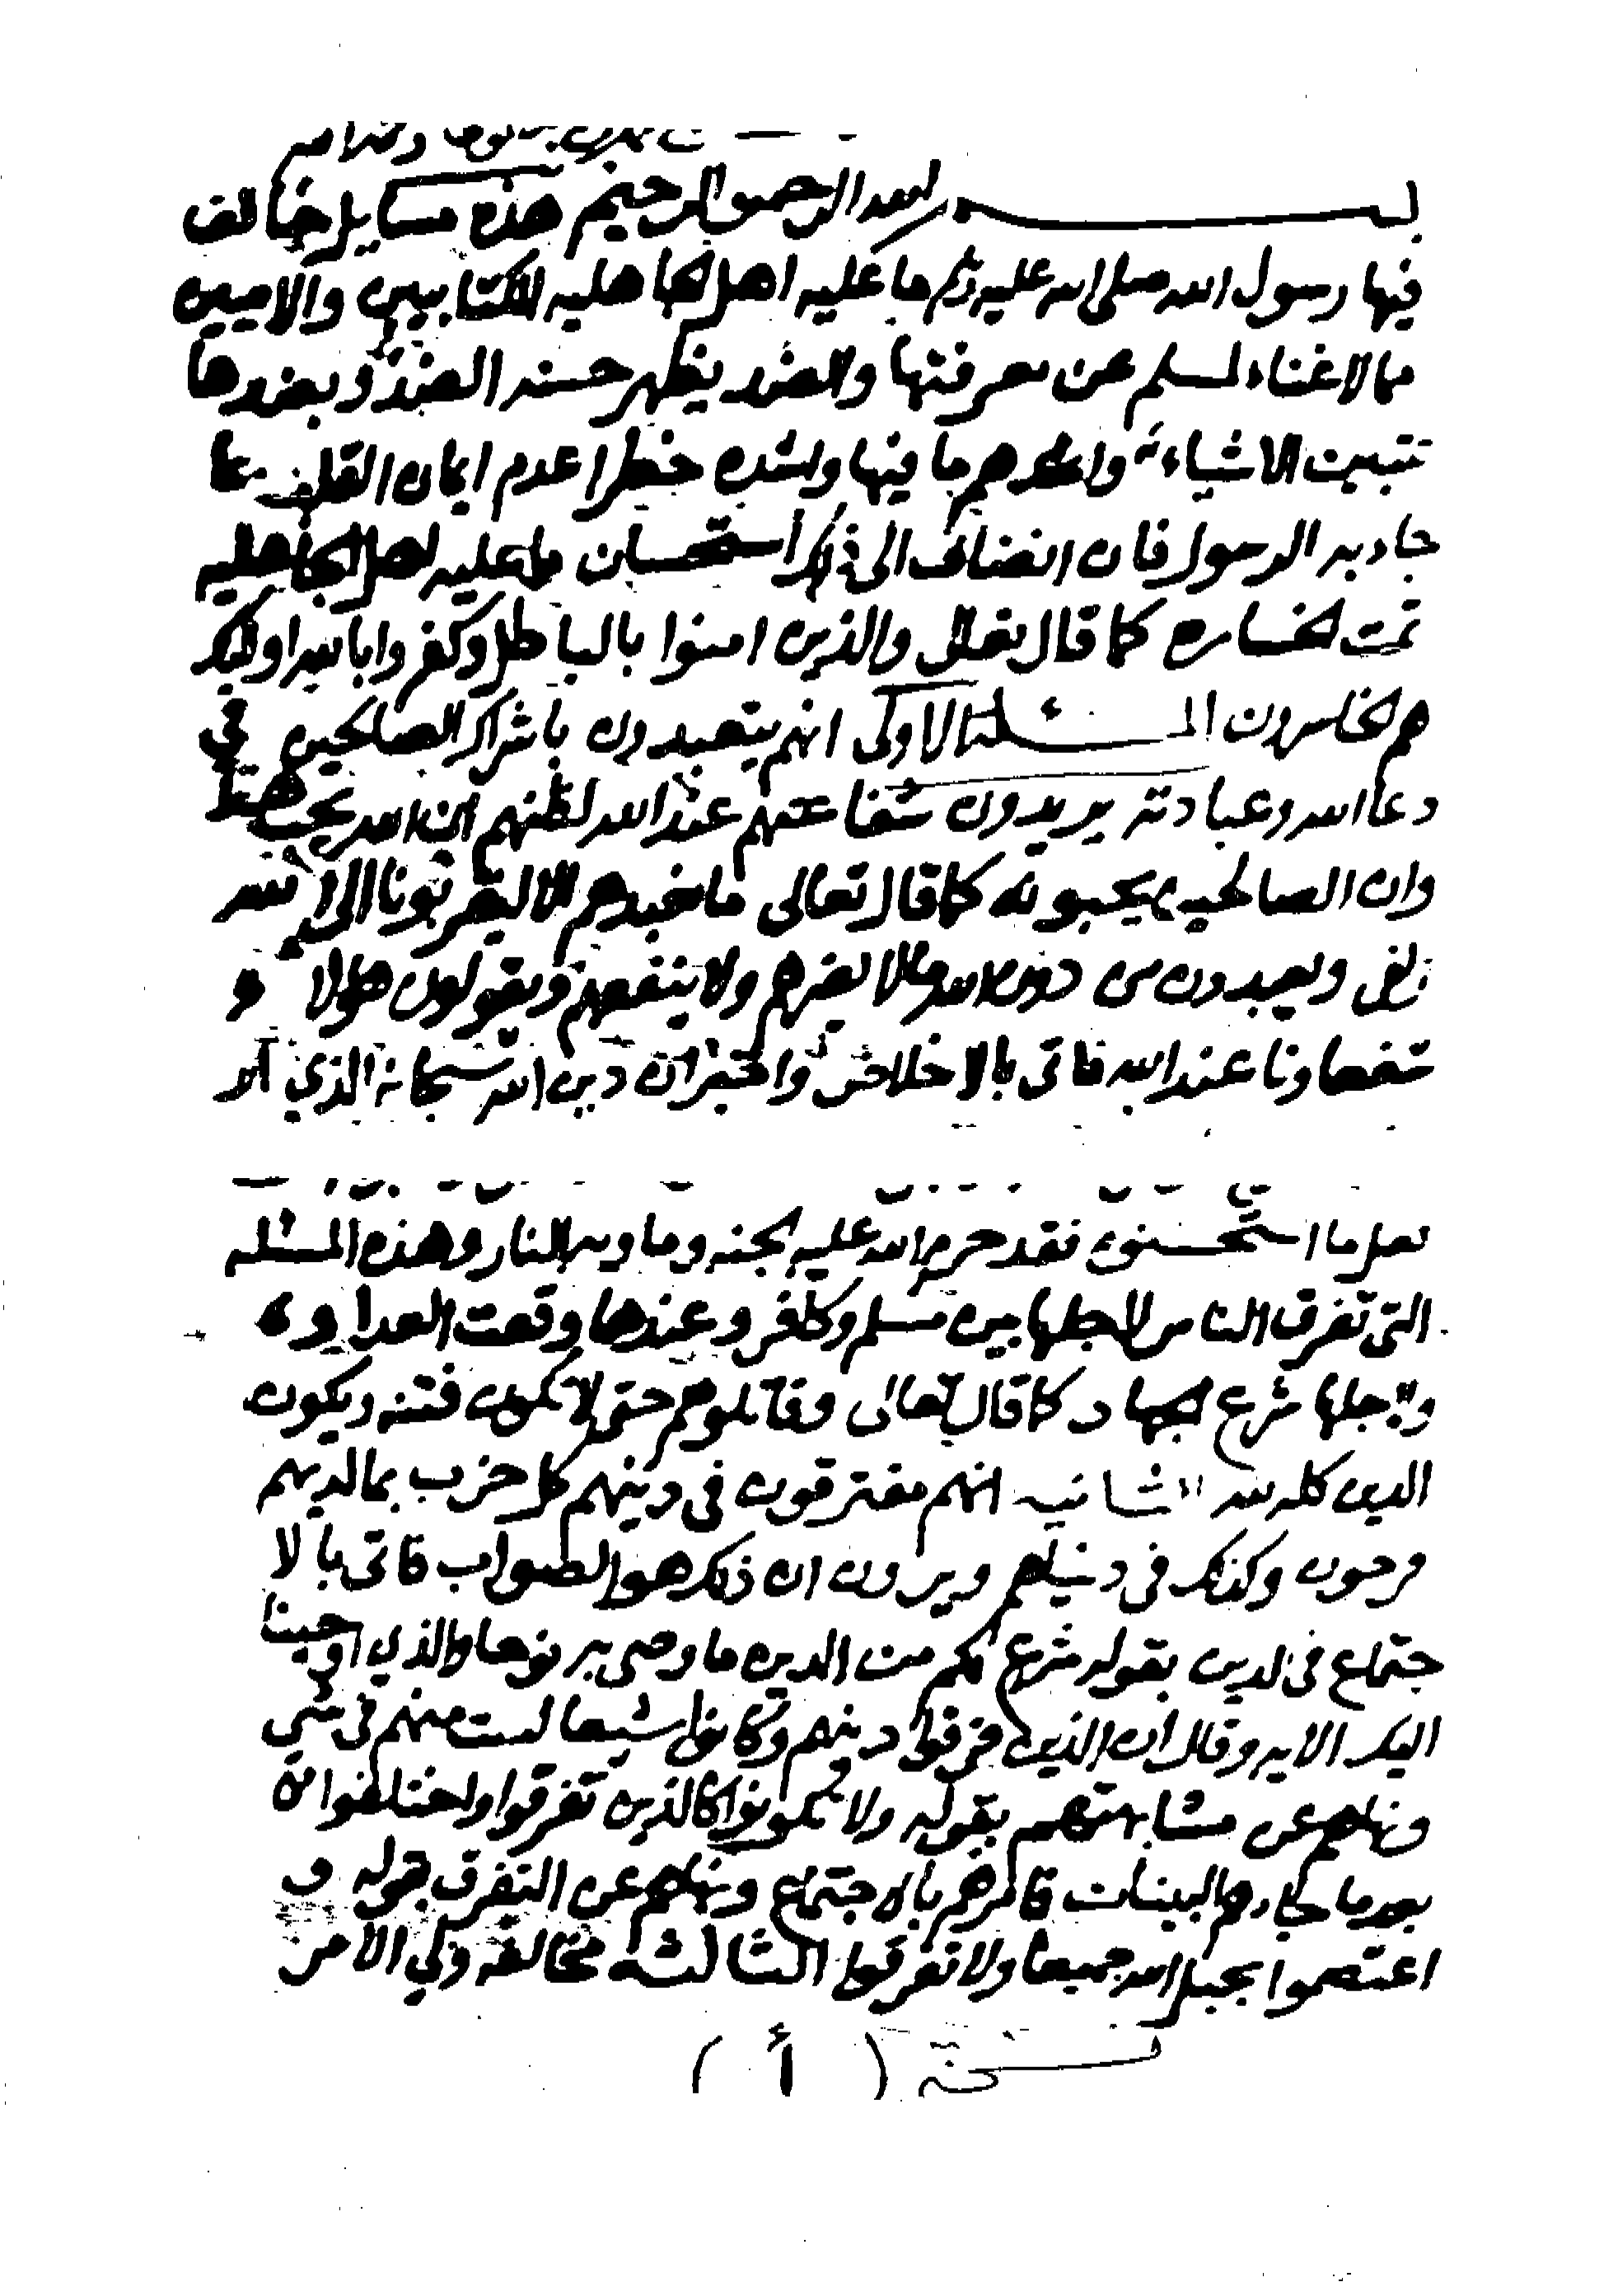 وسلامه
بسم الله الرحمن الرحيم هذه مسايل خالف
فيها رسول الله صلى الله عليه وسلم ما عليه اهل الجاهليه الكتابيين والاميين
مما لا غناء لمسلم عن معرفتها والضد يظهر حسنه الضد وبضدها
تتبين الاشياء واهم ما فيها واشده خطرا عدم ايمان القلب بما
جاء به الرسول فان انضاف الى ذلك استحسان ما عليه اهل الجاهليه
تمت الخساره كما قال تعالى والذين امنوا بالباطل وكفروا بالله اوليك
هم الخاسرون المسئلة الاولى انهم يتعبدون باشراك الصالحين في
دعا الله وعبادته يريدون شفاعتهم عند الله لظنهم ان الله يحب
وان الصالحين يحبونه كما قال تعالى ما نعبدهم الا ليقربونا الى الله
زلفى ويعبدون من دون الله ما لا يضرهم ولا ينفعهم ويقولون هؤلاء
شفعاونا عند الله فاتى بالاخلاص واخبر ان دين الله سبحانه الذي
فعل ما استحسنوه فقد حرم الله عليه الجنه وماويه النار وهذه المسئله
التي تفرق الناس لاجلها بين مسلم وكافر وعندها وقعت العداوه
ولاجلها شرع الجهاد كما قال تعالى وقاتلوهم حتى لا تكون فتنه ويكون
الدين كله لله الثانيه انهم مفترقون في دينهم كل حزب بما لديهم
فرحون وكذلك في دنياهم ويرون ان ذلك هو الصواب فاتى بالا
جتماع في الدين بقوله شرع لكم من الدين ما وصى به نوحا والذي اوحينا
اليك الايه وقال ان الذين فرقوا دينهم وكانوا شيعا لست منهم في شي
ونهاهم عن مشابهتهم بقوله ولا تكونوا كالذين تفرقوا واختلفوا من
بعد ما جاءهم البينات فامرهم بالاجتماع ونهاهم عن التفرق بقوله و
اعتصموا بحبل الله جميعا ولا تفرقوا الثالثه مخالفه ولي الامر
نسخة ( أ )